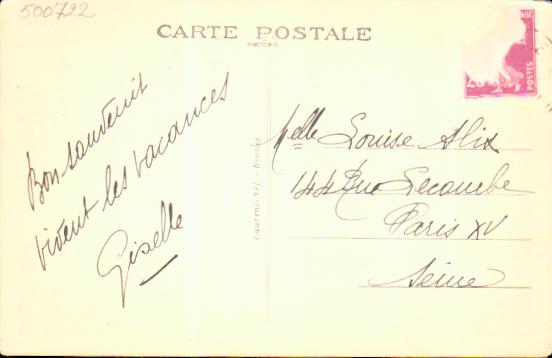 500722
CARTE POSTALE
POSTES
Bon souvenir
vivent les vacances
Giselle
Melle Louise Alix
144 Rue Lecourbe
Paris XV
Seine